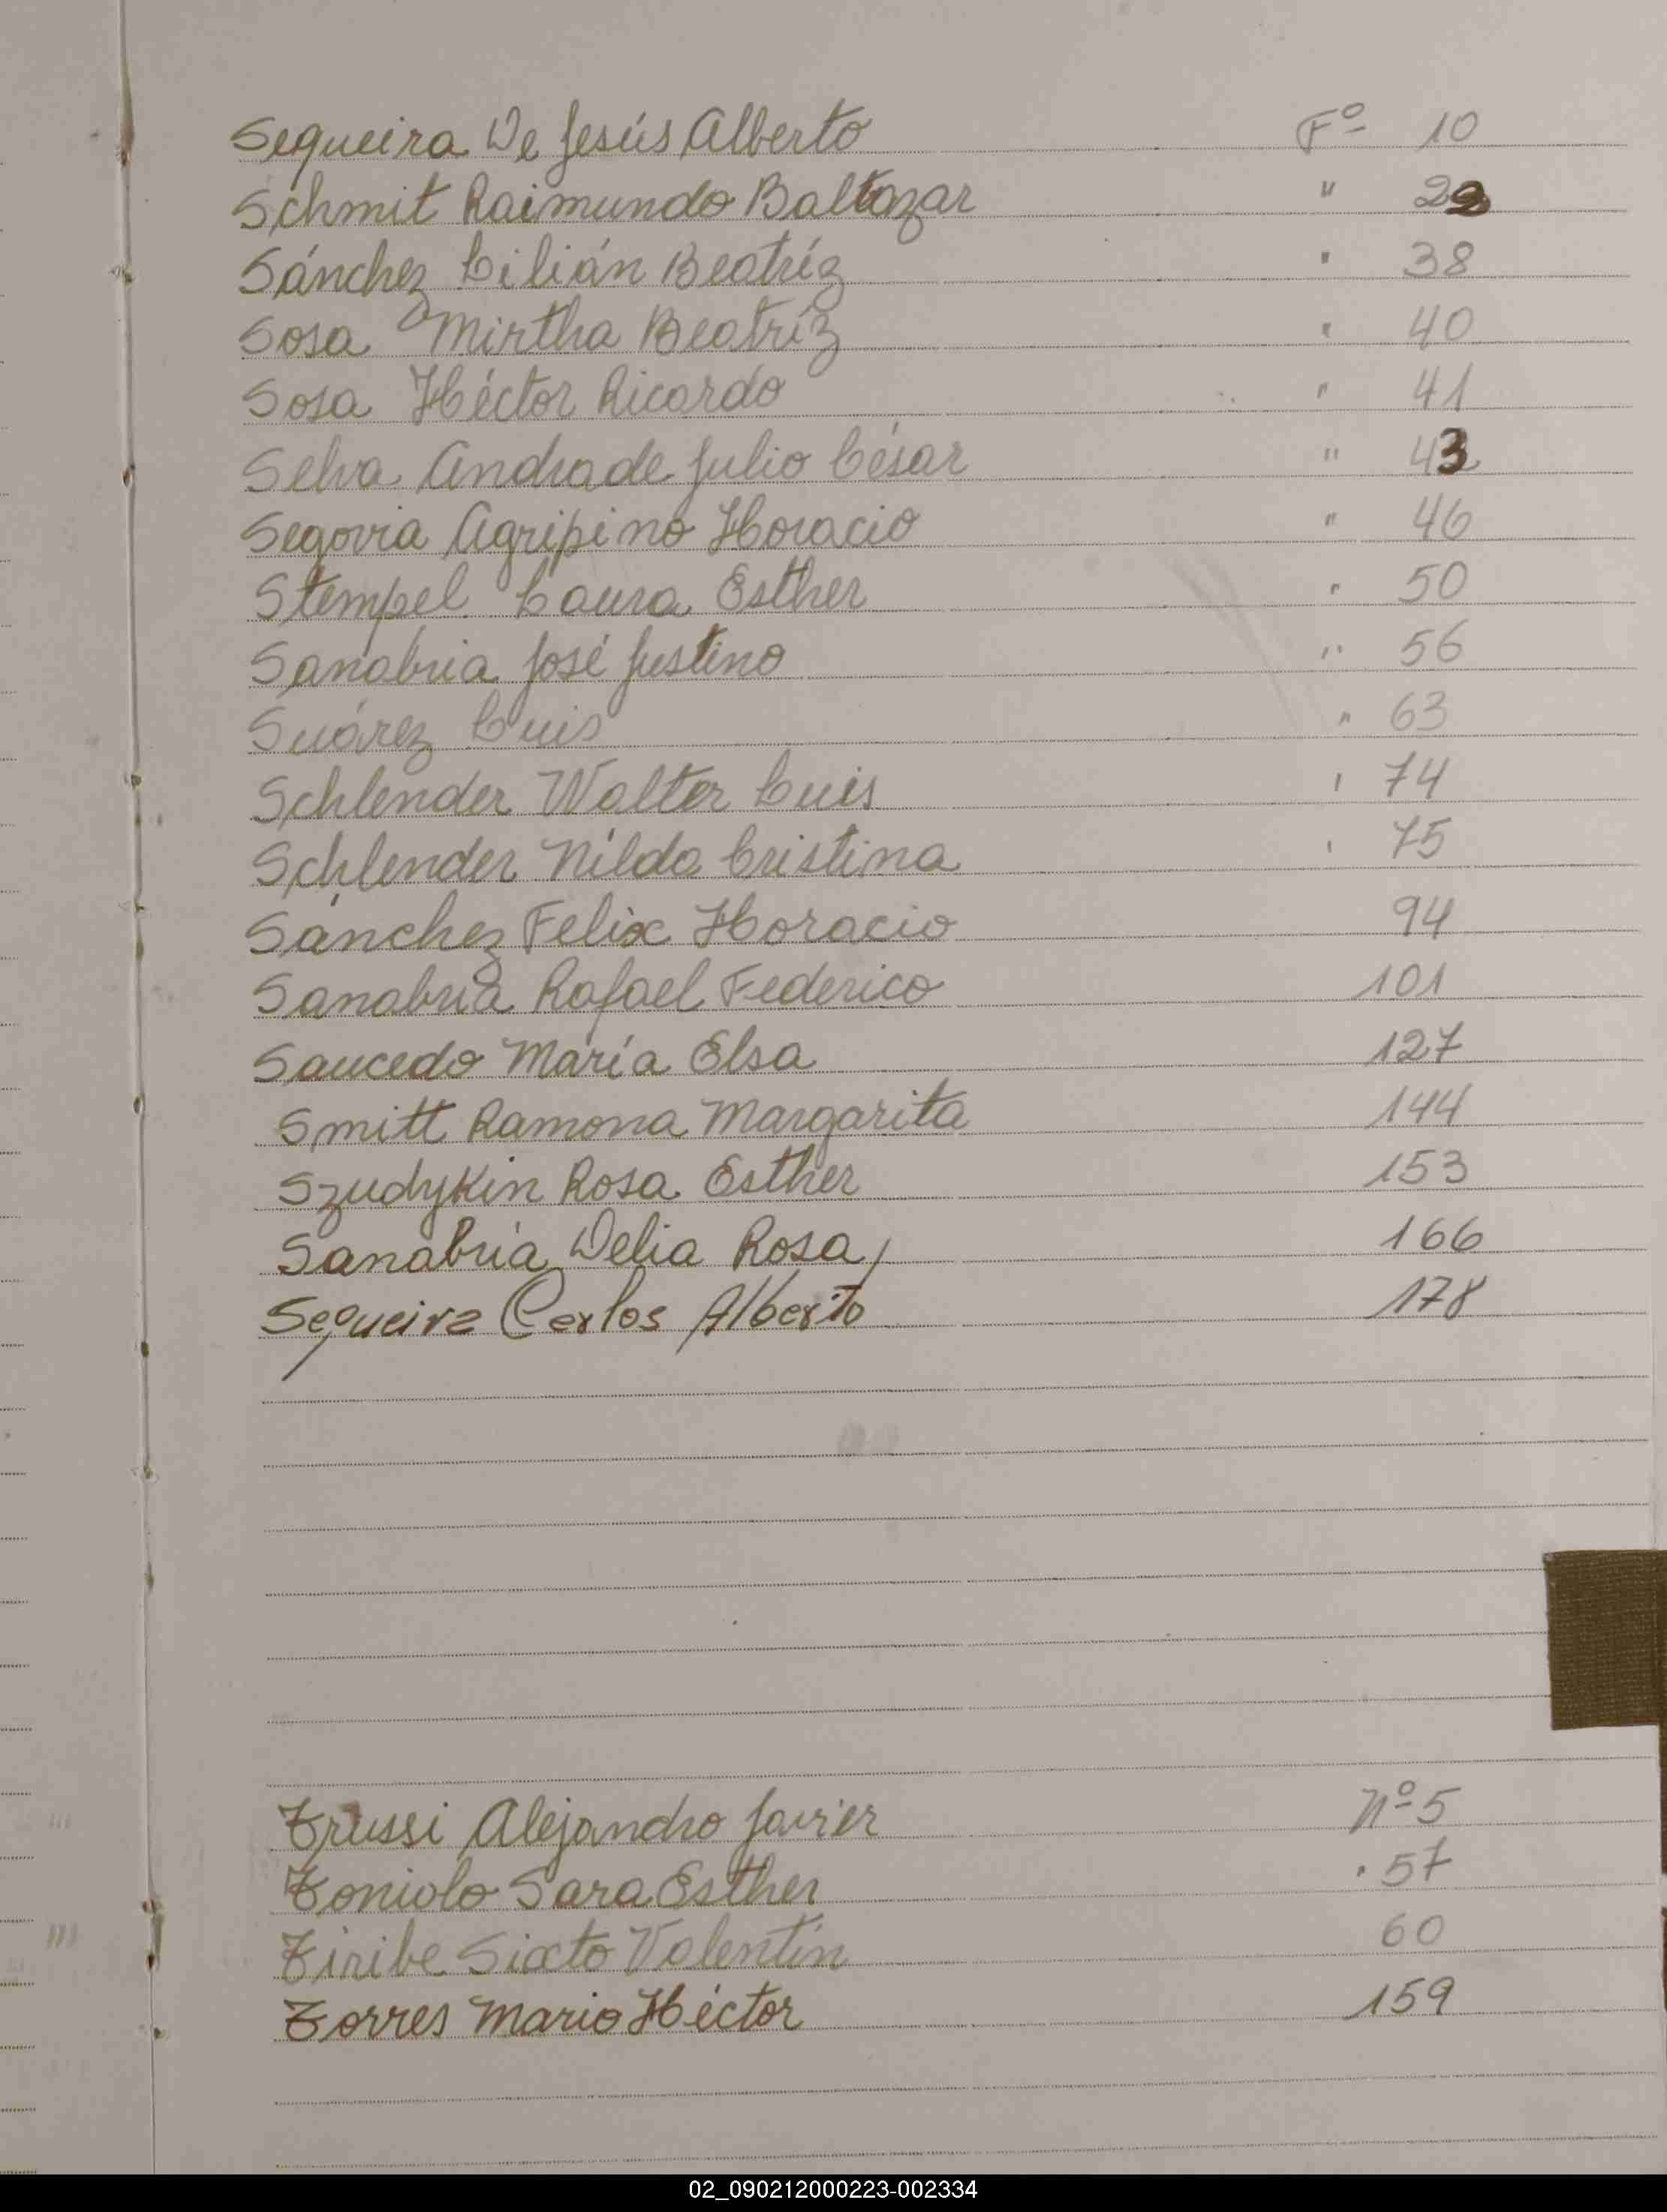 Sequeira De Jesús Alberto Fº 10
Schmit Raimundo Baltazar " 22
Sánchez Lilián Beatríz " 38
Sosa Mirtha Beatríz " 40
Sosa Héctor Ricardo " 41
Selva Andrade Julio César " 43
Segovia Agripino Horacio " 46
Stempel Laura Esther " 50
Sanabria José Justino " 56
Suárez Luis " 63
Schlender Walter Luis " 74
Schlender Nilda Cristina " 75
Sánchez Felix Horacio 94
Sanabria Rafael Federico 101
Saucedo María Elsa 127
Smitt Ramona Margarita 144
Szudykin Rosa Esther 153
Sanabria Delia Rosa 166
Sequeira Carlos Alberto 178
Trussi Alejandro Javier Nº 5
Toniolo Sara Esther " 57
Tiribe Sixto Valentín 60
Torres Mario Héctor 159
02_090212000223-002334